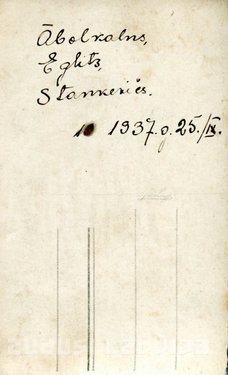 Ābelkalns,
Eglīts,
Stankevičs.
1937.g.25./IX.